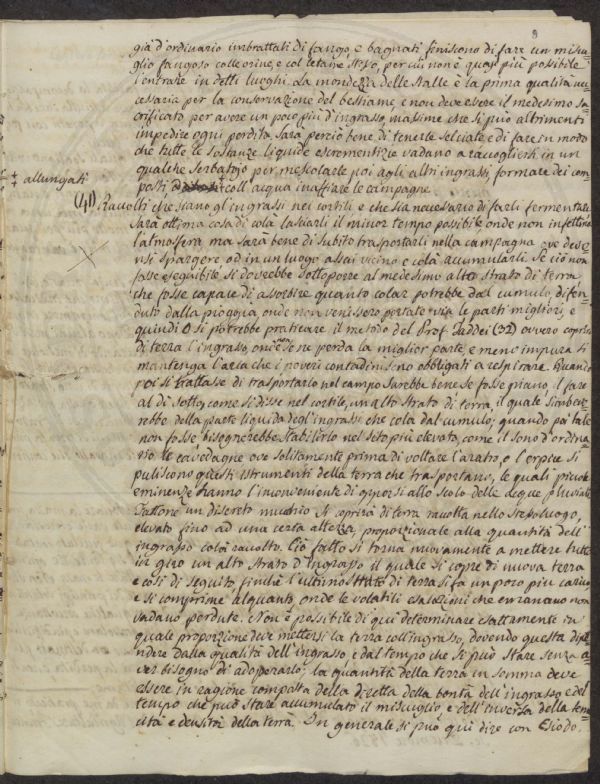 8
già d'ordinario imbrattati di fango, e bagnati finiscono di fare un misu-
glio fangoso colle orine, e col letame stesso, per cui non è quasi più possibile
l'entrare in detti luoghi. La mondezza delle Stalle è la prima qualità ne-
cessaria per la conservazione del bestiame, e non deve essere il medesimo sa-
crificato per avere un poco più d'ingrasso, massime che si può altrimenti
impedire ogni perdita. Sarà perciò bene di tenerle selciate, e di fare in modo
che tutte le sostanze liquide escrementizie vadano a raccogliersi in un
qualche serbatojo per mescolarle poi agli altri ingrassi, formare dei com-
+ allungati
posti coll'acqua inaffiare le campagne.
(41) Raccolti che siano gl'ingrassi nei cortili e che sia necessario di farli fermentare
Sarà ottima cosa di colà lasciarli il minor tempo possibile onde non infettino
l'atmosfera, ma sarà bene di subito trasportarli nella campagna ove deve-
si spargere od in un luogo assai vicino e colà accumularli. Se ciò non
fosse eseguibile si dovrebbe sottoporre al medesimo alto strato di terra
che fosse capace di assorbire quanto colar potrebbe dal cumulo, difen-
duto dalla pioggia, onde non venissero portate via le parti migliori, e
quindi si potrebbe praticare il metodo del Prof. Taddei (32) ovvero coprirsi
di terra l'ingrasso, onde non se ne perda la miglior parte, e meno impura si
mantenga l'aria che i poveri contadini sono obbligati a respirare. Quando
poi si trattasse di trasportarlo nel campo sarebbe bene se fosse piano, il fare
al di sotto, come si disse nel cortile, un alto strato di terra, il quale s'imbeve-
rebbe della parte liquida degl'ingrassi che cola dal cumulo; quando poi tale
non fosse, bisognerebbe stabilirlo nel sito più elevato, come il sono d'ordina-
rio le cavedagne ove solitamente prima di voltare l'aratro, o l'erpice si
puliscono questi istrumenti della terra che trasportano, le quali piccole
eminenze hanno l'inconveniente di opporsi allo scolo delle acque pluviali.
Fattone un discreto mucchio si coprirà di terra raccolta nello stesso luogo,
elevato fino ad una certa altezza, proporzionale alla quantità dell'
ingrasso colà raccolto. Ciò fatto si torna nuovamente a mettere tutto
in giro un alto strato d'ingrasso il quale si copre di nuova terra
e così di seguito, finchè l'ultimo strato di terra si fa un poco più carico
e si comprime alquanto, onde le volatili esalazioni che emanano non
vadano perdute. Non è possibile di qui determinare esattamente in
quale proporzione deve mettersi la terra coll'ingrasso, dovendo questa dipe-
ndere dalla qualità dell'ingrasso e dal tempo che si può stare senza a-
ver bisogno di adoperarlo; la quantità della terra in somma deve
essere in ragione composta della diretta della bontà dell'ingrasso e del
tempo che può stare accumulato il miscuglio, e dell'inversa della tena-
cità e densità della terra. In generale si può qui dire con Esiodo.